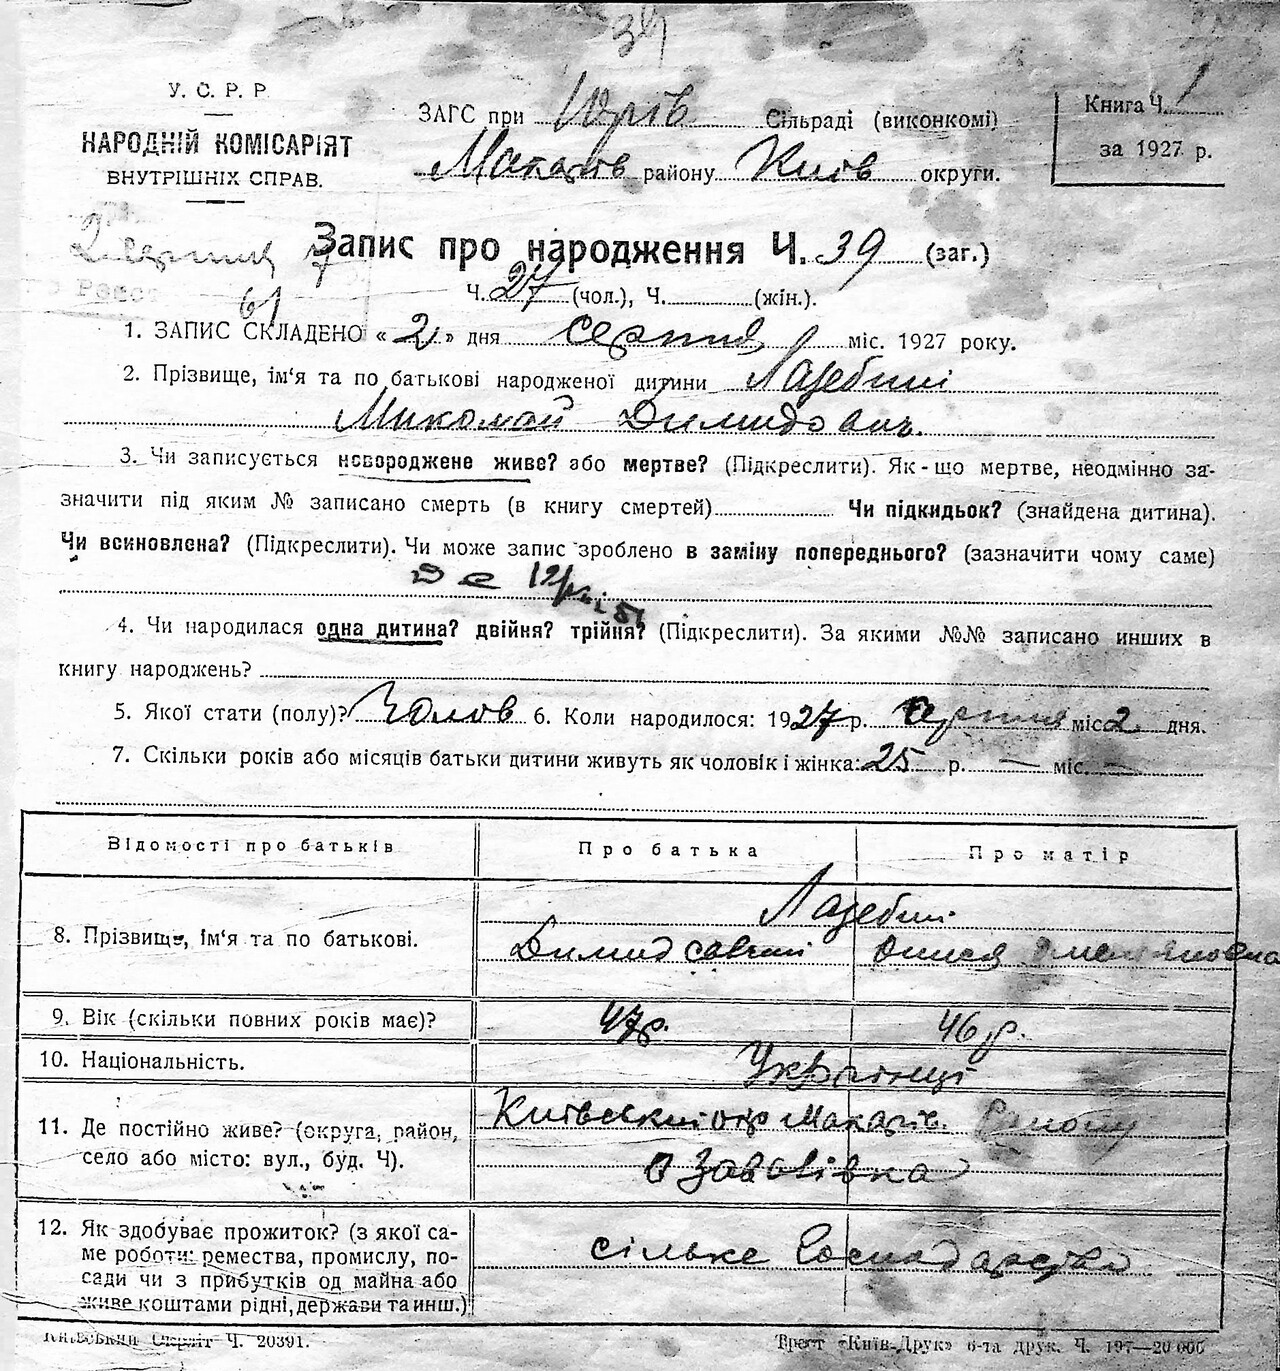 34
У. С. Р. Р.
НАРОДНІЙ КОМІСАРІЯТ
ВНУТРІШНІХ СПРАВ.
ЗАГС при Юрів Сільраді (виконкомі)
Макарів району Київ округи.
Книга Ч. 1
за 1927 р.
Запис про народження Ч. 39 (заг.)
Ч. 27 (чол.), Ч. (жін.).
61
1. ЗАПИС СКЛАДЕНО «2» дня серпня міс. 1927 року.
2. Прізвище, ім‘я та по батькові народженої дитини Лазебний
Миколай Димидович.
3. Чи записується новороджене живе? або мертве? (Підкреслити). Як-що мертве, неодмінно за-
значити під яким № записано смерть (в книгу смертей) Чи підкидьок? (знайдена дитина).
Чи всиновлена? (Підкреслити). Чи може запис зроблено в заміну попереднього? (зазначити чому саме)
4. Чи народилася одна дитина? двійня? трійня? (Підкреслити). За якими №№ записано инших в
книгу народжень?
5. Якої стати (полу)? Чолов 6. Коли народилося: 1927 р. серпня міс. 2 дня.
7. Скільки років або місяців батьки дитини живуть як чоловік і жінка: 25 р. — міс. —
Відомості про батьків Про батька Про матір
Лазебні
8. Прізвище, ім‘я та по батькові.
Димид Савич Онися Омеляновна
9. Вік (скільки повних років має)? 47 р. 46 р.
10. Національність. Українці
11. Де постійно живе? (округа, район, Київський окр Макарів. району
село або місто: вул., буд. Ч). с Завалівка
12. Як здобуває прожиток? (з якої са-
ме роботи: ремества, промислу, по- сільке господарство
сади чи з прибутків од майна або
живе коштами рідні, держави та инш.)
Київський Окрліт Ч. 20391. Трест «Київ-Друк» 6-та друк. Ч. 197—20 000